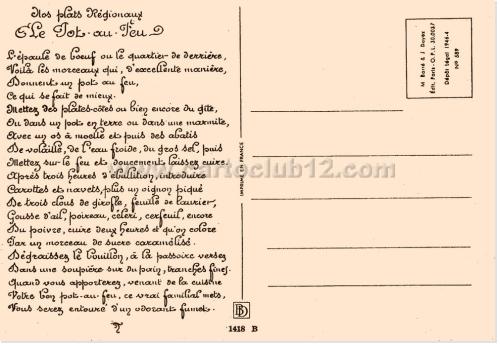 Nos plats Régionaux
Le Pot-au-Feu
L'épaule de boeuf ou le quartier de derrière,
Voilà les morceaux qui, d'excellente manière,
Donnent un pot au feu,
Ce qui se fait de mieux.
Mettez des plates-côtes ou bien encore du gîte,
Ou dans un pot en terre ou dans une marmite,
Avec un os à moelle et puis des abatis
De volaille, de l'eau froide, du gros sel, puis
Mettez sur le feu et doucement laissez cuire.
Après trois heures d'ébullition, introduire
Carottes et navets, plus un oignon piqué
De trois clous de girofle, feuille de laurier,
Gousse d'ail, poireau, céleri, cerfeuil, encore
Du poivre, cuire deux heures et qu'on colore
Par un morceau de sucre caramélisé.
Dégraissez le bouillon, à la passoire versez
Dans une soupière sur du pain, tranches fines.
Quand vous apporterez, venant de la cuisine
Votre bon pot-au-feu, ce vrai familial mets,
Vous serez entouré d'un odorant fumet.
IMPRIMÉ EN FRANCE
M. Barré & J. Dayez
Édit. Paris - O.P.L. 30.0037
Dépôt légal 1946-4
N° 589
BD
1418 B
www.cartoclub12.com